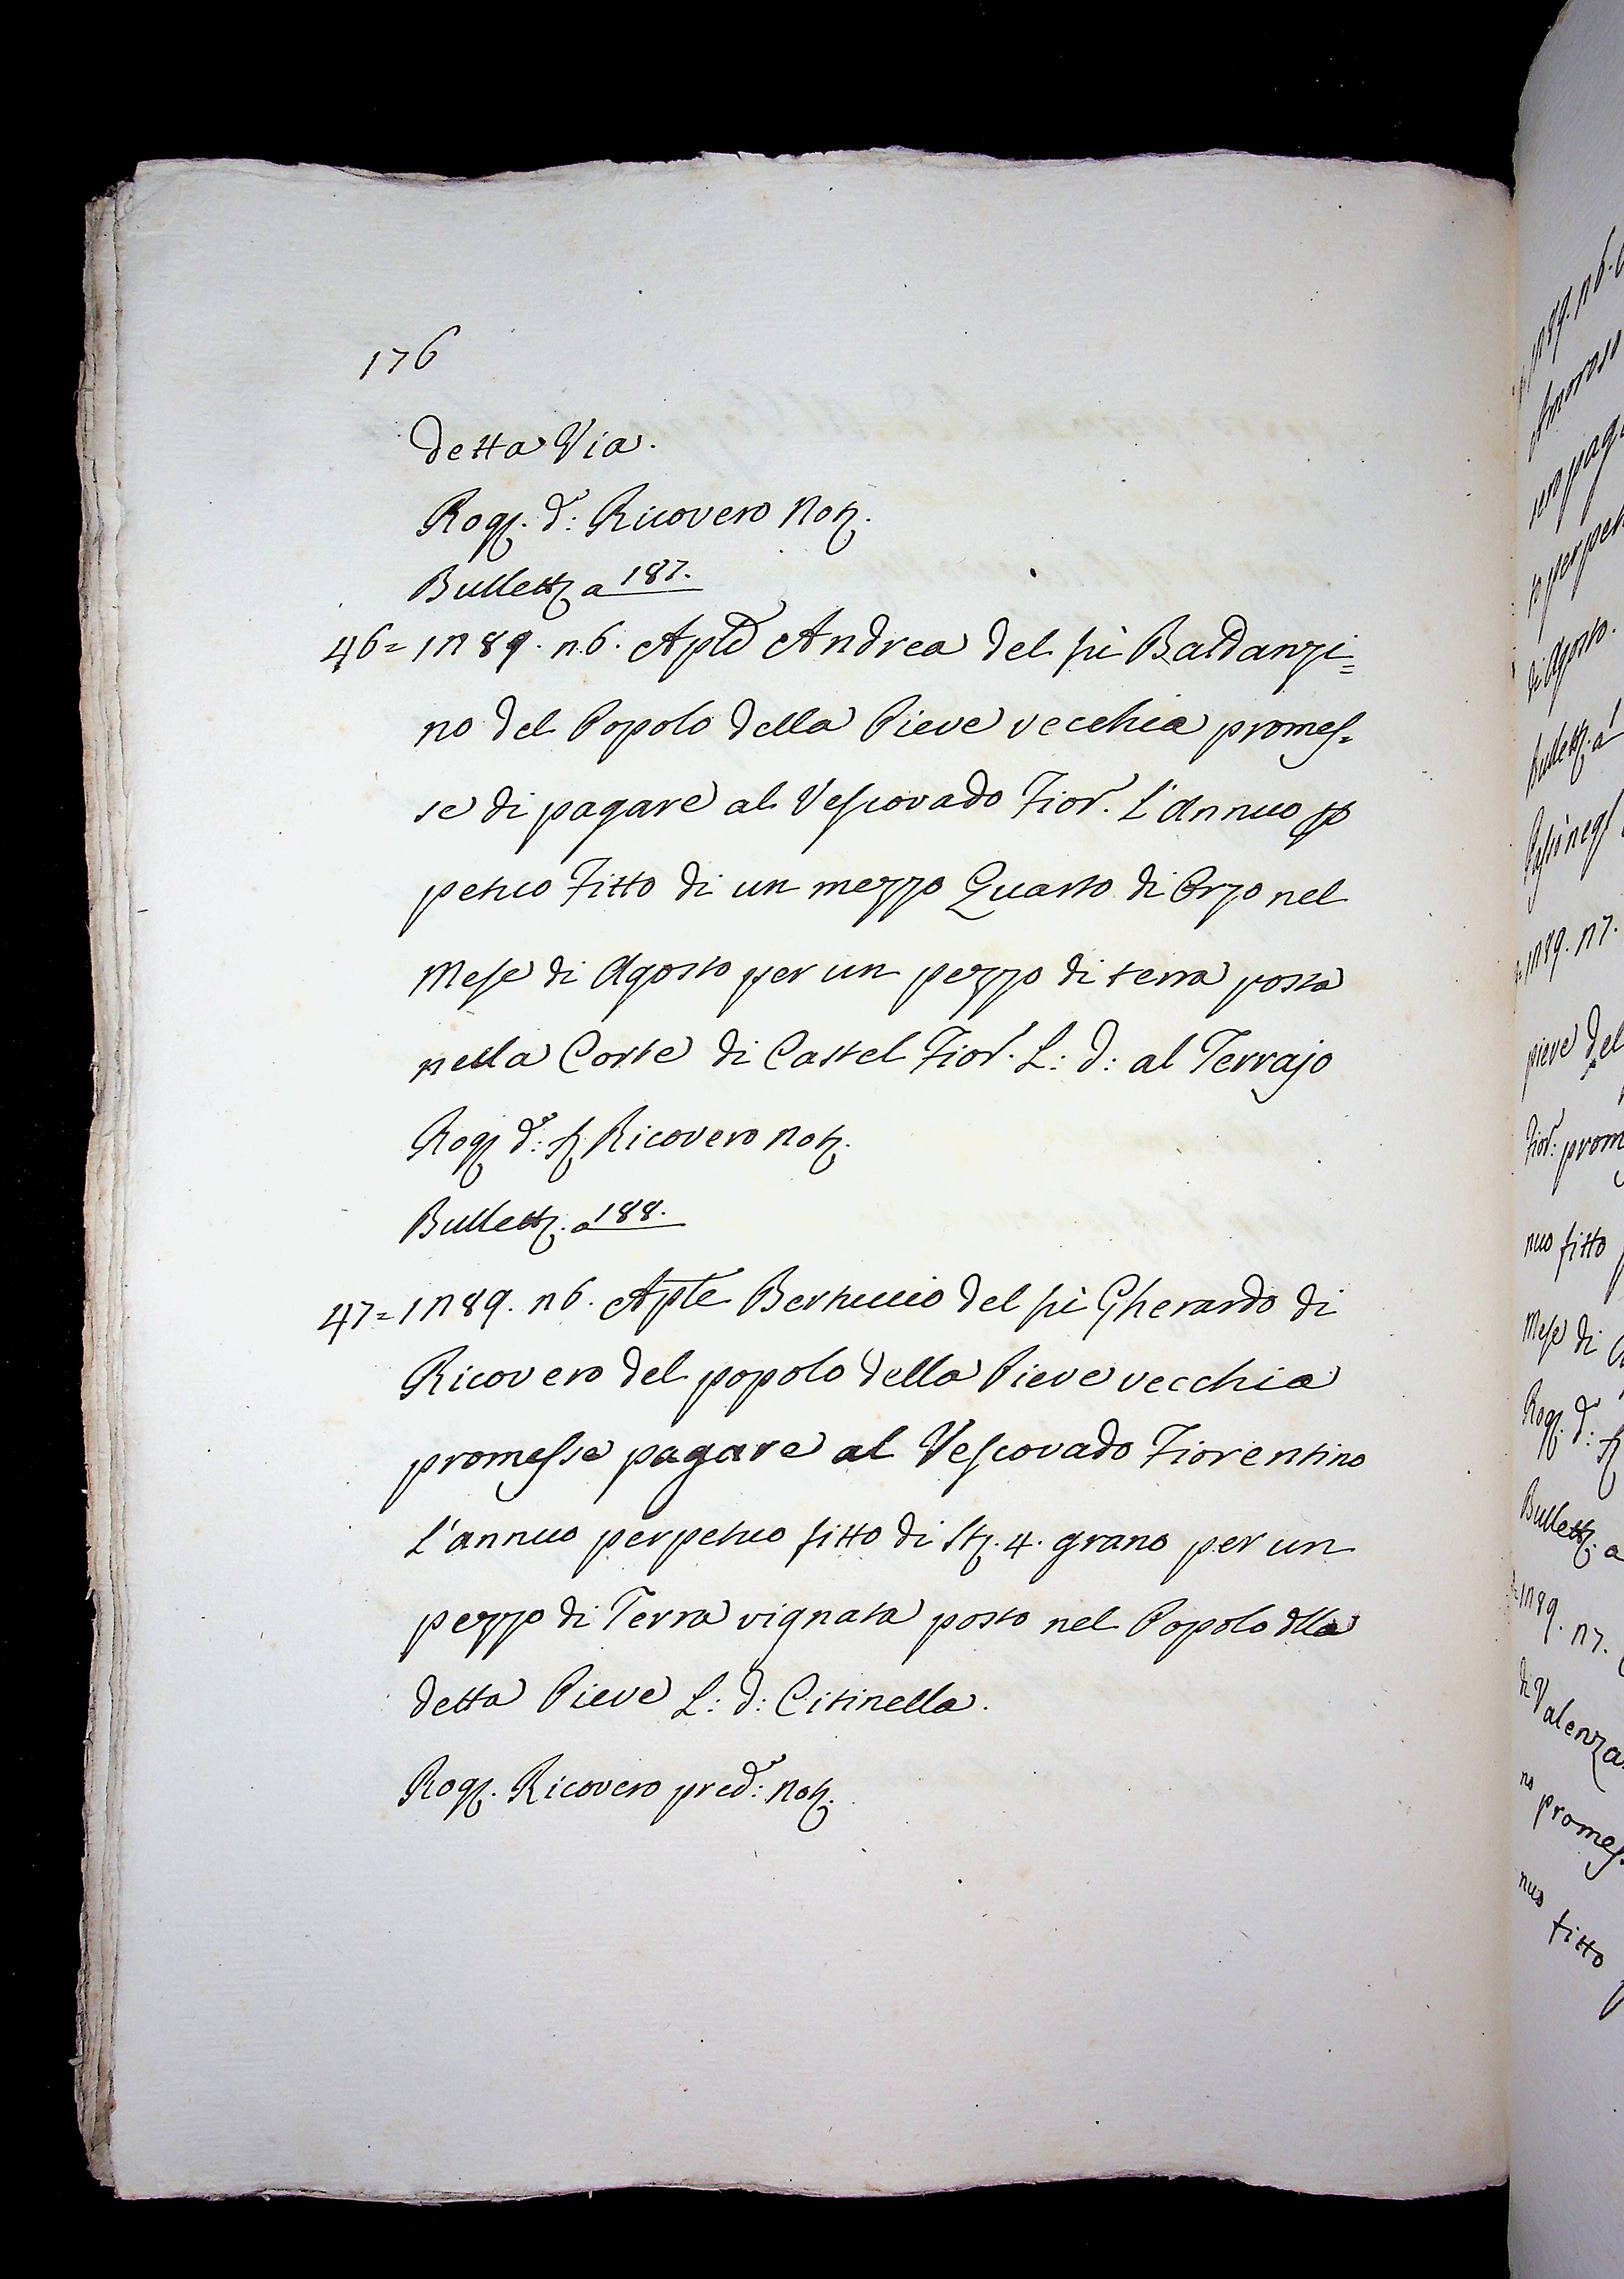 176
detta Via.
Rog. d: Ricovero Not.
Bullett. a 187.
46= 1289. 26. Aple Andrea del fù Baldanzi=
no del Popolo della Pieve vecchia promes=
se di pagare al Vescovado Fior. L'Annuo per
petuo Fitto di un mezzo Quarto di Orzo nel
Mese di Agosto per un pezzo di terra posta
nella Corte di Castel Fior. L: d: al Terrajo
Rog. d: Ricovero Not.
Bullett. a 188.
47= 1289. 26. Aple Bertuccio del fù Gherardo di
Ricovero del popolo della Pieve vecchia
promesse pagare al Vescovado Fiorentino
L'annuo perpetuo fitto di St. 4. grano per un
pezzo di Terra vignata posto nel Popolo dlla
detta Pieve L: d: Citinella.
Rog. Ricovero pred: Not.
1289. 26.
di Agosto.
Bullett. a
1289. 27.
pieve del
Fior: prom
nuo fitto
Mese di
Rog. d:
Bullett. a
1289. 27.
di Valenza
no promes
nuo fitto